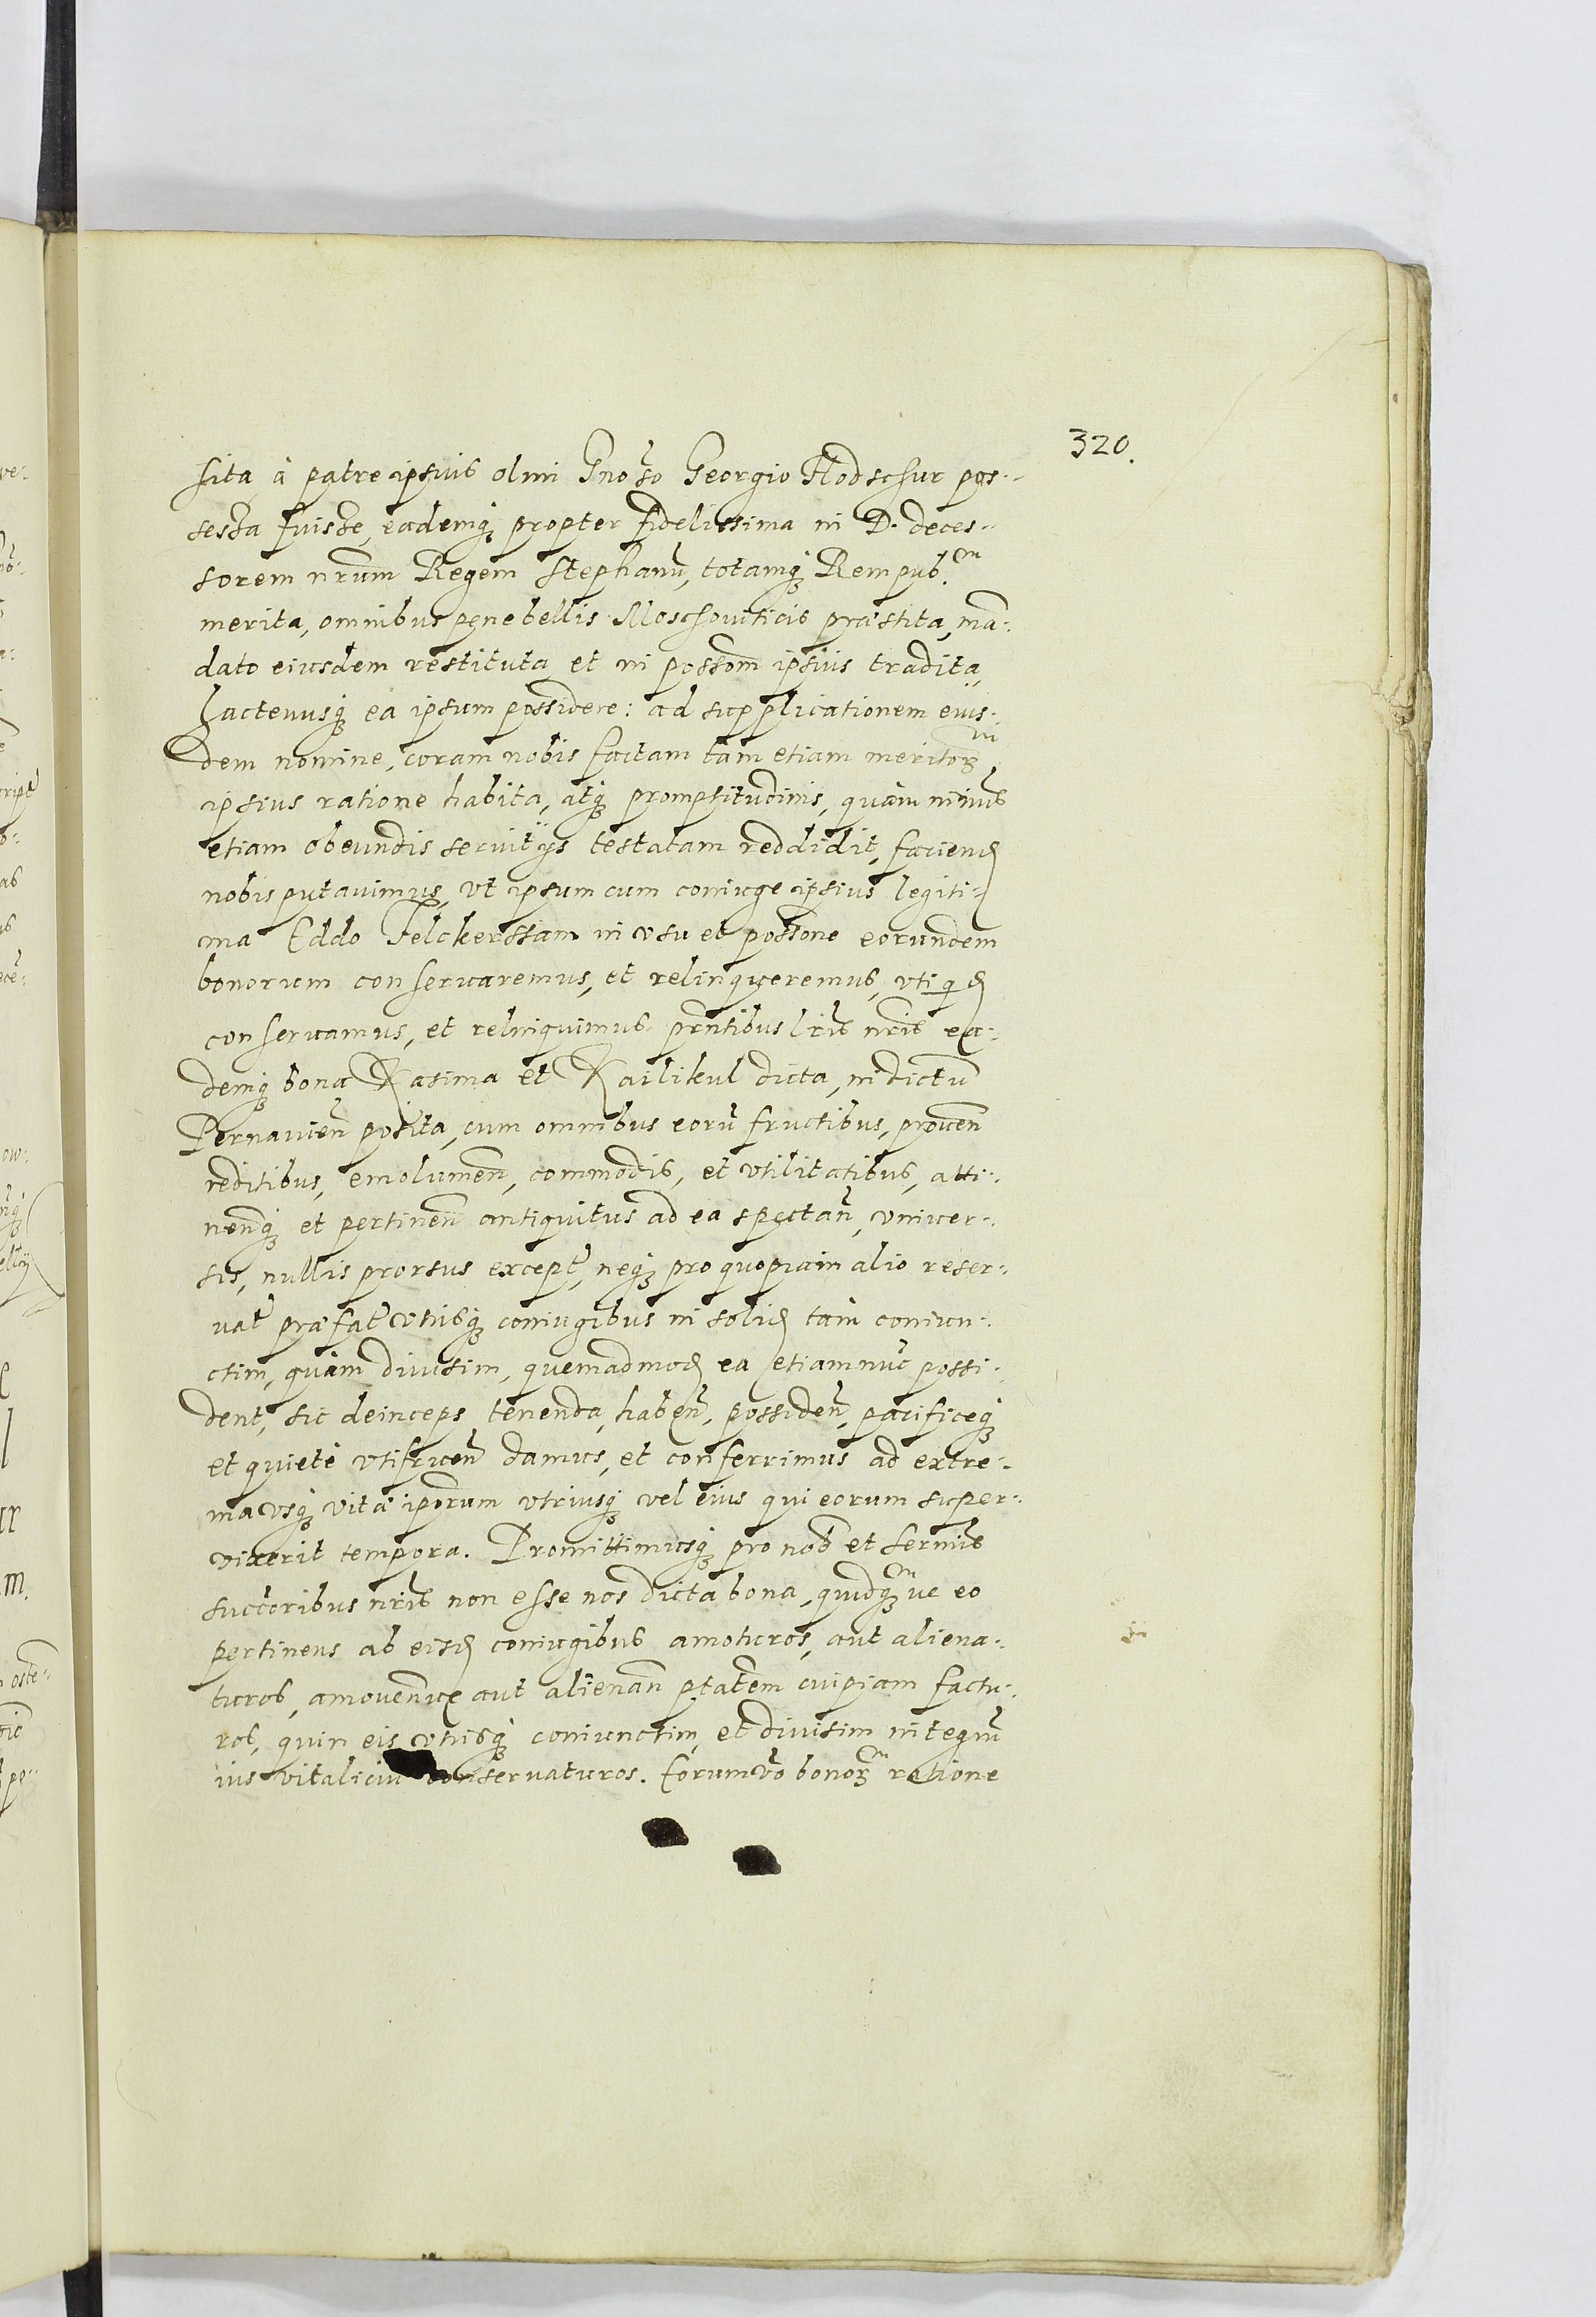 320.
sita à patre ipsius olim Gnoso Georgio Hodschur pos-
sessa fuisse, eademq́ꝫ propter fidelissima in D. deces-
sorem nr̄um Regem Stephanū, totamq́ꝫ Rempub.cm
merita, omnibus pene bellis Moschouiticis præstita, mā-
dato eiusdem restituta et in possom̄ ipsius tradita,
hactenusq́ꝫ ea ipsum possidere: ad supplicationem eius-
dem nomine, coram nobis factam tam etiam meritorꝫ
ipsius ratione habita, atq́ꝫ promptitudinis, quàm
etiam obeundis seruitÿs testatam reddidit, faciend
nobis putauimus, vt ipsum cum coniuge ipsius legiti-
ma Eddo Felckerssam in vsu et possone eorundem
bonorum conseruaremus, et relinqueremus, vti qd
conseruamus, et relinquimus prn̄tibus lr̄is nr̄is ea-
demq́ꝫ bona Kasima et Kailikul dicta, in dictū
Pernauien̄ posita, cum omnibus eorū fructibus, prouen̄
reditibus, emolumen̄, commodis, et vtilitatibus, atti-
nen̄q́ꝫ et pertinen̄ antiquitus ad ea spectan̄, vniuer-
sis, nullis prorsus except̄, neq́ꝫ pro quopiam alio reser-
uat̄ præfat̄ vtrisq́ꝫ coniugibus in solid tàm coniun-
ctim, quàm diuisim, quemadmod ea etiamnūc possi-
dent, sic deinceps tenenda, haben̄, possiden̄, pacificeq́ꝫ
et quietè vtifruen̄ damus, et conferrimus ad extre-
ma vsq́ꝫ vitæ ipsorum vtriusq́ꝫ vel eius qui eorum super-
vixerit tempora. Promittimusq́ꝫ pro nob et Sermis
succoribus nr̄is non esse nos dicta bona, quidqꝫ ue eo
pertinens ab eisd coniugibus amoturos, aut aliena-
turos, amouen̄ue aut alienan̄ ptatem cuipiam factu-
ros, quin eis vtrisq́ꝫ coniunctim, et diuisim integrū
ius vitaliciū conseruaturos. Eorum vō bonorꝫ ratione